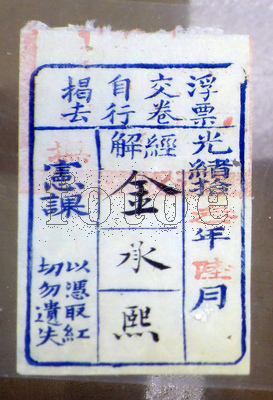 浮票
交卷
自行
揭去
光緒拾
年陸月
經解
金承熙
憲課
以憑取紅
切勿遺失